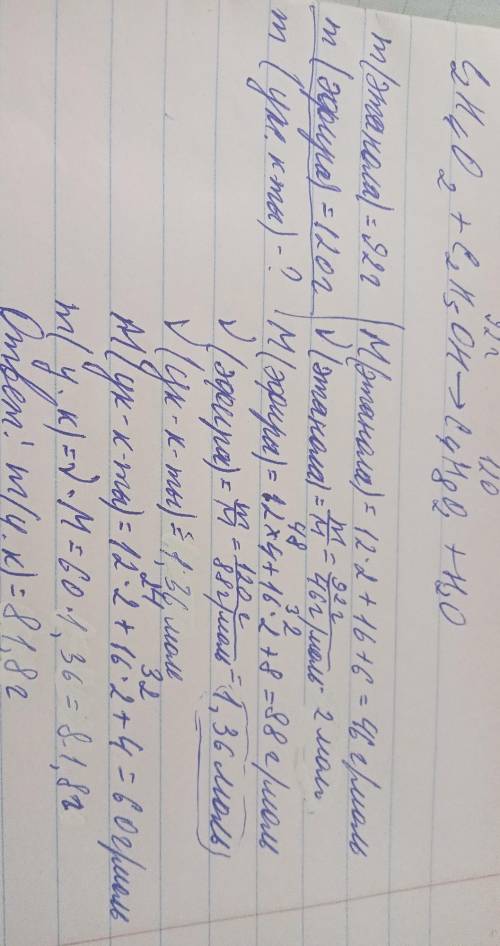 92г 120
C₂H₄O₂ + C₂H₅OH → C₄H₈O₂ + H₂O
m(этанола) = 92г
m(эфира) = 120г
m(укс. к-ты) - ?
M(этанола) = 12·2 + 16 + 6 = 46 г/моль
ν(этанола) = m/M = 92г/46г/моль = 2 моль
M(эфира) = 12·4 + 16·2 + 8 = 88 г/моль
48 32
ν(эфира) = m/M = 120г/88г/моль = 1,36 моль
ν(укс-к-ты) = 1,36 моль
24 32
M(укс-к-ты) = 12·2 + 16·2 + 4 = 60г/моль
m(у.к) = ν·M = 60·1,36 = 81,8г
Ответ: m(у.к) = 81,8г